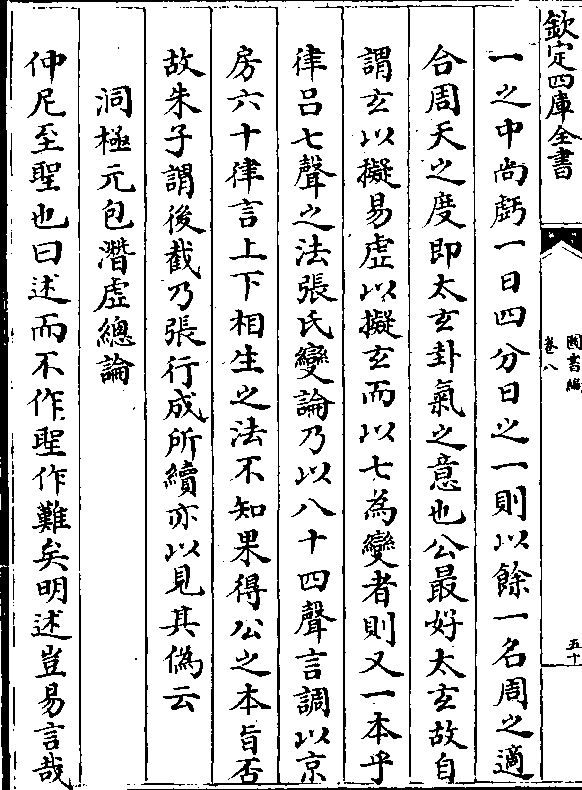 欽定四庫全書
圖書編
卷八
五十
一之中尚虧一日四分日之一則以餘一名周之適
合周天之度即太玄卦氣之意也公最好太玄故自
謂玄以擬易虛以擬玄而以七為變者則又一本乎
律呂七聲之法張氏變論乃以八十四聲言調以京
房六十律言上下相生之法不知果得公之本旨否
故朱子謂後截乃張行成所續亦以見其偽云
洞極元包潛虛總論
仲尼至聖也曰述而不作聖作難矣明述豈易言哉